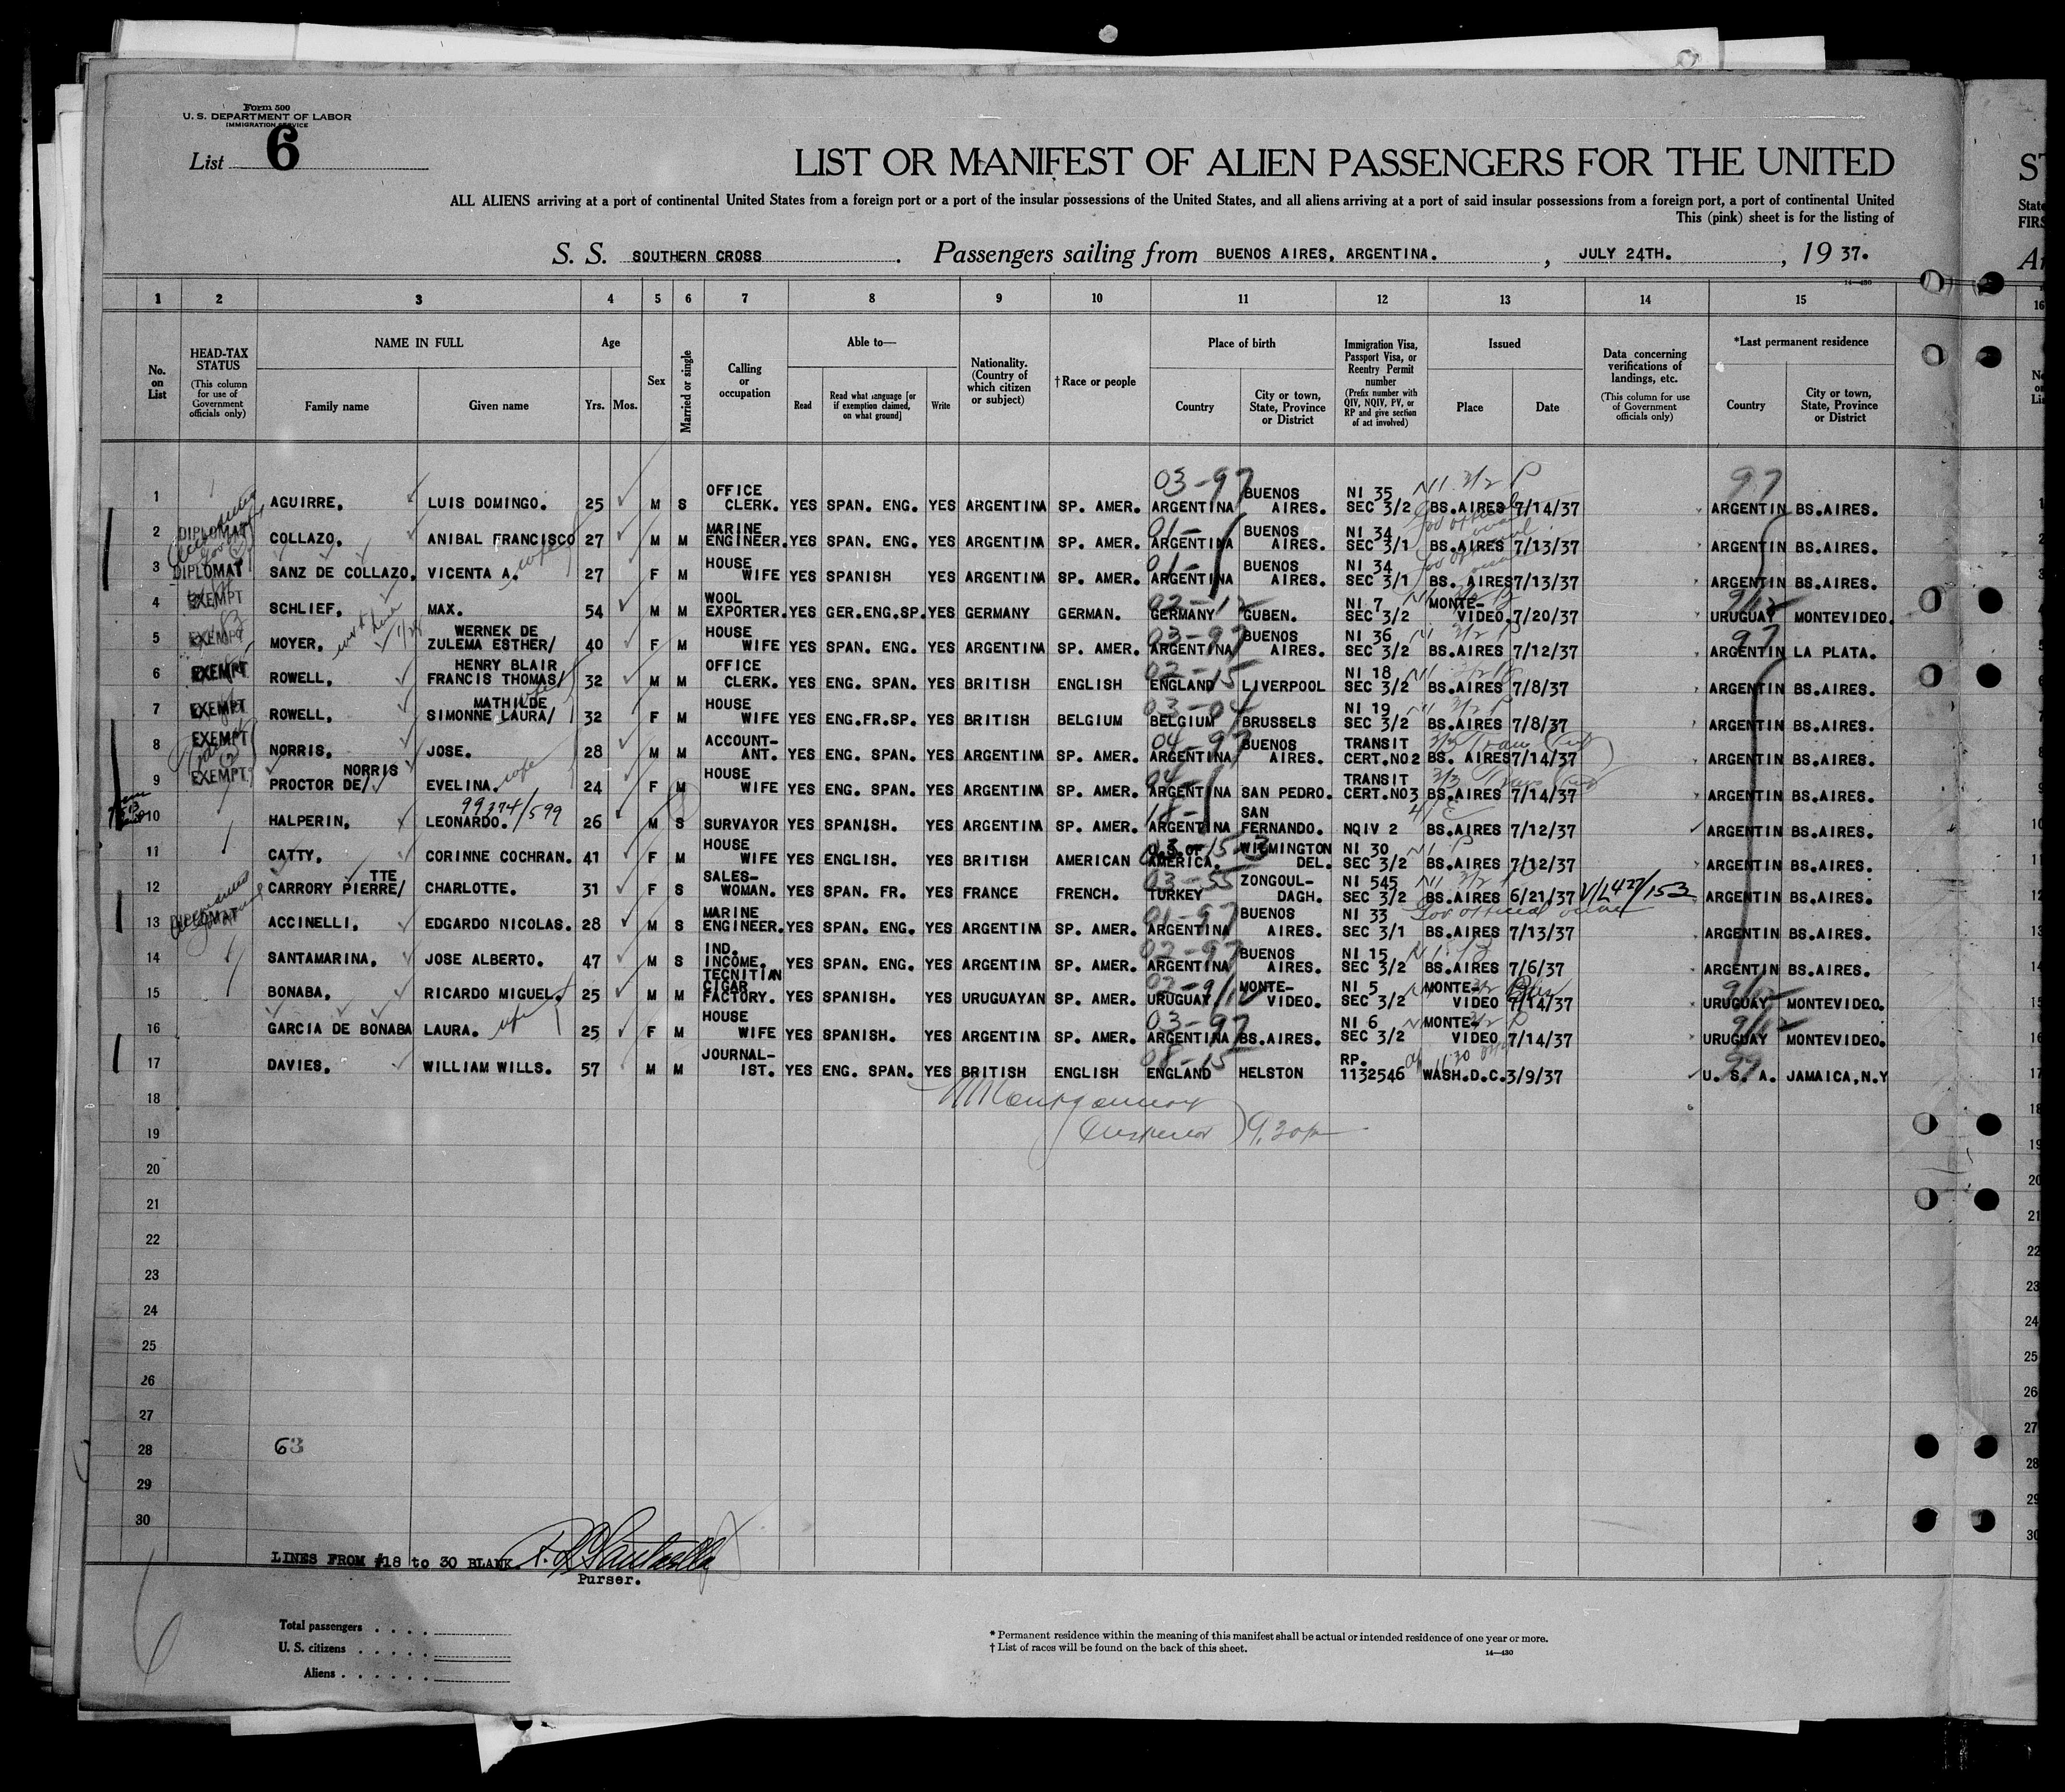 Form 500
U. S. DEPARTMENT OF LABOR
IMMIGRATION SERVICE
List 6
LIST OR MANIFEST OF ALIEN PASSENGERS FOR THE UNITED
ALL ALIENS arriving at a port of continental United States from a foreign port or a port of the insular possessions of the United States, and all aliens arriving at a port of said insular possessions from a foreign port, a port of continental United
This (pink) sheet is for the listing of
S. S. SOUTHERN CROSS. Passengers sailing from BUENOS AIRES, ARGENTINA. , JULY 24TH. , 19 37.
14—430
1 2 3 4 5 6 7 8 9 10 11 12 13 14 15 16
No. on List
HEAD-TAX STATUS (This column for use of Government officials only)
NAME IN FULL Family name Given name
Age Yrs. Mos.
Sex
Married or single
Calling or occupation
Able to— Read Read what language [or if exemption claimed, on what ground] Write
Nationality. (Country of which citizen or subject)
†Race or people
Place of birth Country City or town, State, Province or District
Immigration Visa, Passport Visa, or Reentry Permit number (Prefix number with QIV, NQIV, PV, or RP and give section of act involved)
Issued Place Date
Data concerning verifications of landings, etc. (This column for use of Government officials only)
*Last permanent residence Country City or town, State, Province or District
1 AGUIRRE. LUIS DOMINGO. 25 M S OFFICE CLERK. YES SPAN. ENG. YES ARGENTINA SP. AMER. 03-97 ARGENTINA BUENOS AIRES. NI 35 SEC 3/2 BS.AIRES 7/14/37 97 ARGENTIN BS.AIRES.
2 DIPLOMAT COLLAZO. ANIBAL FRANCISCO 27 M M MARINE ENGINEER. YES SPAN. ENG. YES ARGENTINA SP. AMER. 01- ARGENTINA BUENOS AIRES. NI 34 SEC 3/1 BS.AIRES 7/13/37 ARGENTIN BS.AIRES.
3 DIPLOMAT SANZ DE COLLAZO. VICENTA A. wife 27 F M HOUSE WIFE YES SPANISH YES ARGENTINA SP. AMER. 01- ARGENTINA BUENOS AIRES. NI 34 SEC 3/1 BS. AIRES 7/13/37 ARGENTIN BS.AIRES.
4 EXEMPT SCHLIEF. MAX. 54 M M WOOL EXPORTER. YES GER.ENG.SP. YES GERMANY GERMAN. 02-12 GERMANY GUBEN. NI 7 SEC 3/2 MONTE-VIDEO. 7/20/37 URUGUAY MONTEVIDEO.
5 EXEMPT MOYER. WERNEK DE ZULEMA ESTHER/ 40 F M HOUSE WIFE YES SPAN. ENG. YES ARGENTINA SP. AMER. 03-97 ARGENTINA BUENOS AIRES. NI 36 SEC 3/2 BS.AIRES 7/12/37 97 ARGENTIN LA PLATA.
6 EXEMPT ROWELL. HENRY BLAIR FRANCIS THOMAS/ 32 M M OFFICE CLERK. YES ENG. SPAN. YES BRITISH ENGLISH 02-15 ENGLAND LIVERPOOL NI 18 SEC 3/2 BS.AIRES 7/8/37 ARGENTIN BS.AIRES.
7 EXEMPT ROWELL. MATHILDE SIMONNE LAURA/ 32 F M HOUSE WIFE YES ENG.FR.SP. YES BRITISH BELGIUM 03-04 BELGIUM BRUSSELS NI 19 SEC 3/2 BS.AIRES 7/8/37 ARGENTIN BS.AIRES.
8 EXEMPT NORRIS. JOSE. 28 M M ACCOUNT-ANT. YES ENG. SPAN. YES ARGENTINA SP. AMER. 04-97 ARGENTINA BUENOS AIRES. TRANSIT CERT.NO2 BS. AIRES 7/14/37 ARGENTIN BS.AIRES.
9 EXEMPT NORRIS PROCTOR DE/ EVELINA. wife 24 F M HOUSE WIFE YES ENG. SPAN. YES ARGENTINA SP. AMER. 04- ARGENTINA SAN PEDRO. TRANSIT CERT.NO3 BS.AIRES 7/14/37 ARGENTIN BS.AIRES.
10 HALPERIN. LEONARDO. 99374/599 26 M S SURVAYOR YES SPANISH. YES ARGENTINA SP. AMER. ARGENTINA SAN FERNANDO. NQIV 2 BS.AIRES 7/12/37 ARGENTIN BS.AIRES.
11 CATTY. CORINNE COCHRAN. 41 F M HOUSE WIFE YES ENGLISH. YES BRITISH AMERICAN U.S. OF AMERICA. WILMINGTON DEL. NI 30 SEC 3/2 BS.AIRES 7/12/37 ARGENTIN BS.AIRES.
12 CARRORY PIERRE/ TTE CHARLOTTE. 31 F S SALES-WOMAN. YES SPAN. FR. YES FRANCE FRENCH. 03-55 TURKEY ZONGOUL-DAGH. NI 545 SEC 3/2 BS.AIRES 6/21/37 V/L427/153 ARGENTIN BS.AIRES.
13 DIPLOMAT ACCINELLI. EDGARDO NICOLAS. 28 M S MARINE ENGINEER. YES SPAN. ENG. YES ARGENTINA SP. AMER. 01-97 ARGENTINA BUENOS AIRES. NI 33 SEC 3/1 BS.AIRES 7/13/37 ARGENTIN BS.AIRES.
14 SANTAMARINA. JOSE ALBERTO. 47 M S IND. INCOME. YES SPAN. ENG. YES ARGENTINA SP. AMER. 02-97 ARGENTINA BUENOS AIRES. NI 15 SEC 3/2 BS.AIRES 7/6/37 ARGENTIN BS.AIRES.
15 BONABA. RICARDO MIGUEL. 25 M M TECNITIAN CIGAR FACTORY. YES SPANISH. YES URUGUAYAN SP. AMER. URUGUAY MONTE-VIDEO. NI 5 SEC 3/2 MONTE-VIDEO 7/14/37 URUGUAY MONTEVIDEO.
16 GARCIA DE BONABA LAURA. wife 25 F M HOUSE WIFE YES SPANISH. YES ARGENTINA SP. AMER. 03-97 ARGENTINA BS.AIRES. NI 6 SEC 3/2 MONTE-VIDEO 7/14/37 URUGUAY MONTEVIDEO.
17 DAVIES. WILLIAM WILLS. 57 M M JOURNAL-IST. YES ENG. SPAN. YES BRITISH ENGLISH 08-15 ENGLAND HELSTON RP. 1132546 WASH.D.C. 3/9/37 99 U. S. A. JAMAICA,N.Y
18 Montgomery
19 Inspector 9.30
20
21
22
23
24
25
26
27
28 63
29
30
LINES FROM #18 to 30 BLANK.
Purser.
Total passengers
U. S. citizens
Aliens
* Permanent residence within the meaning of this manifest shall be actual or intended residence of one year or more.
† List of races will be found on the back of this sheet.
14—430